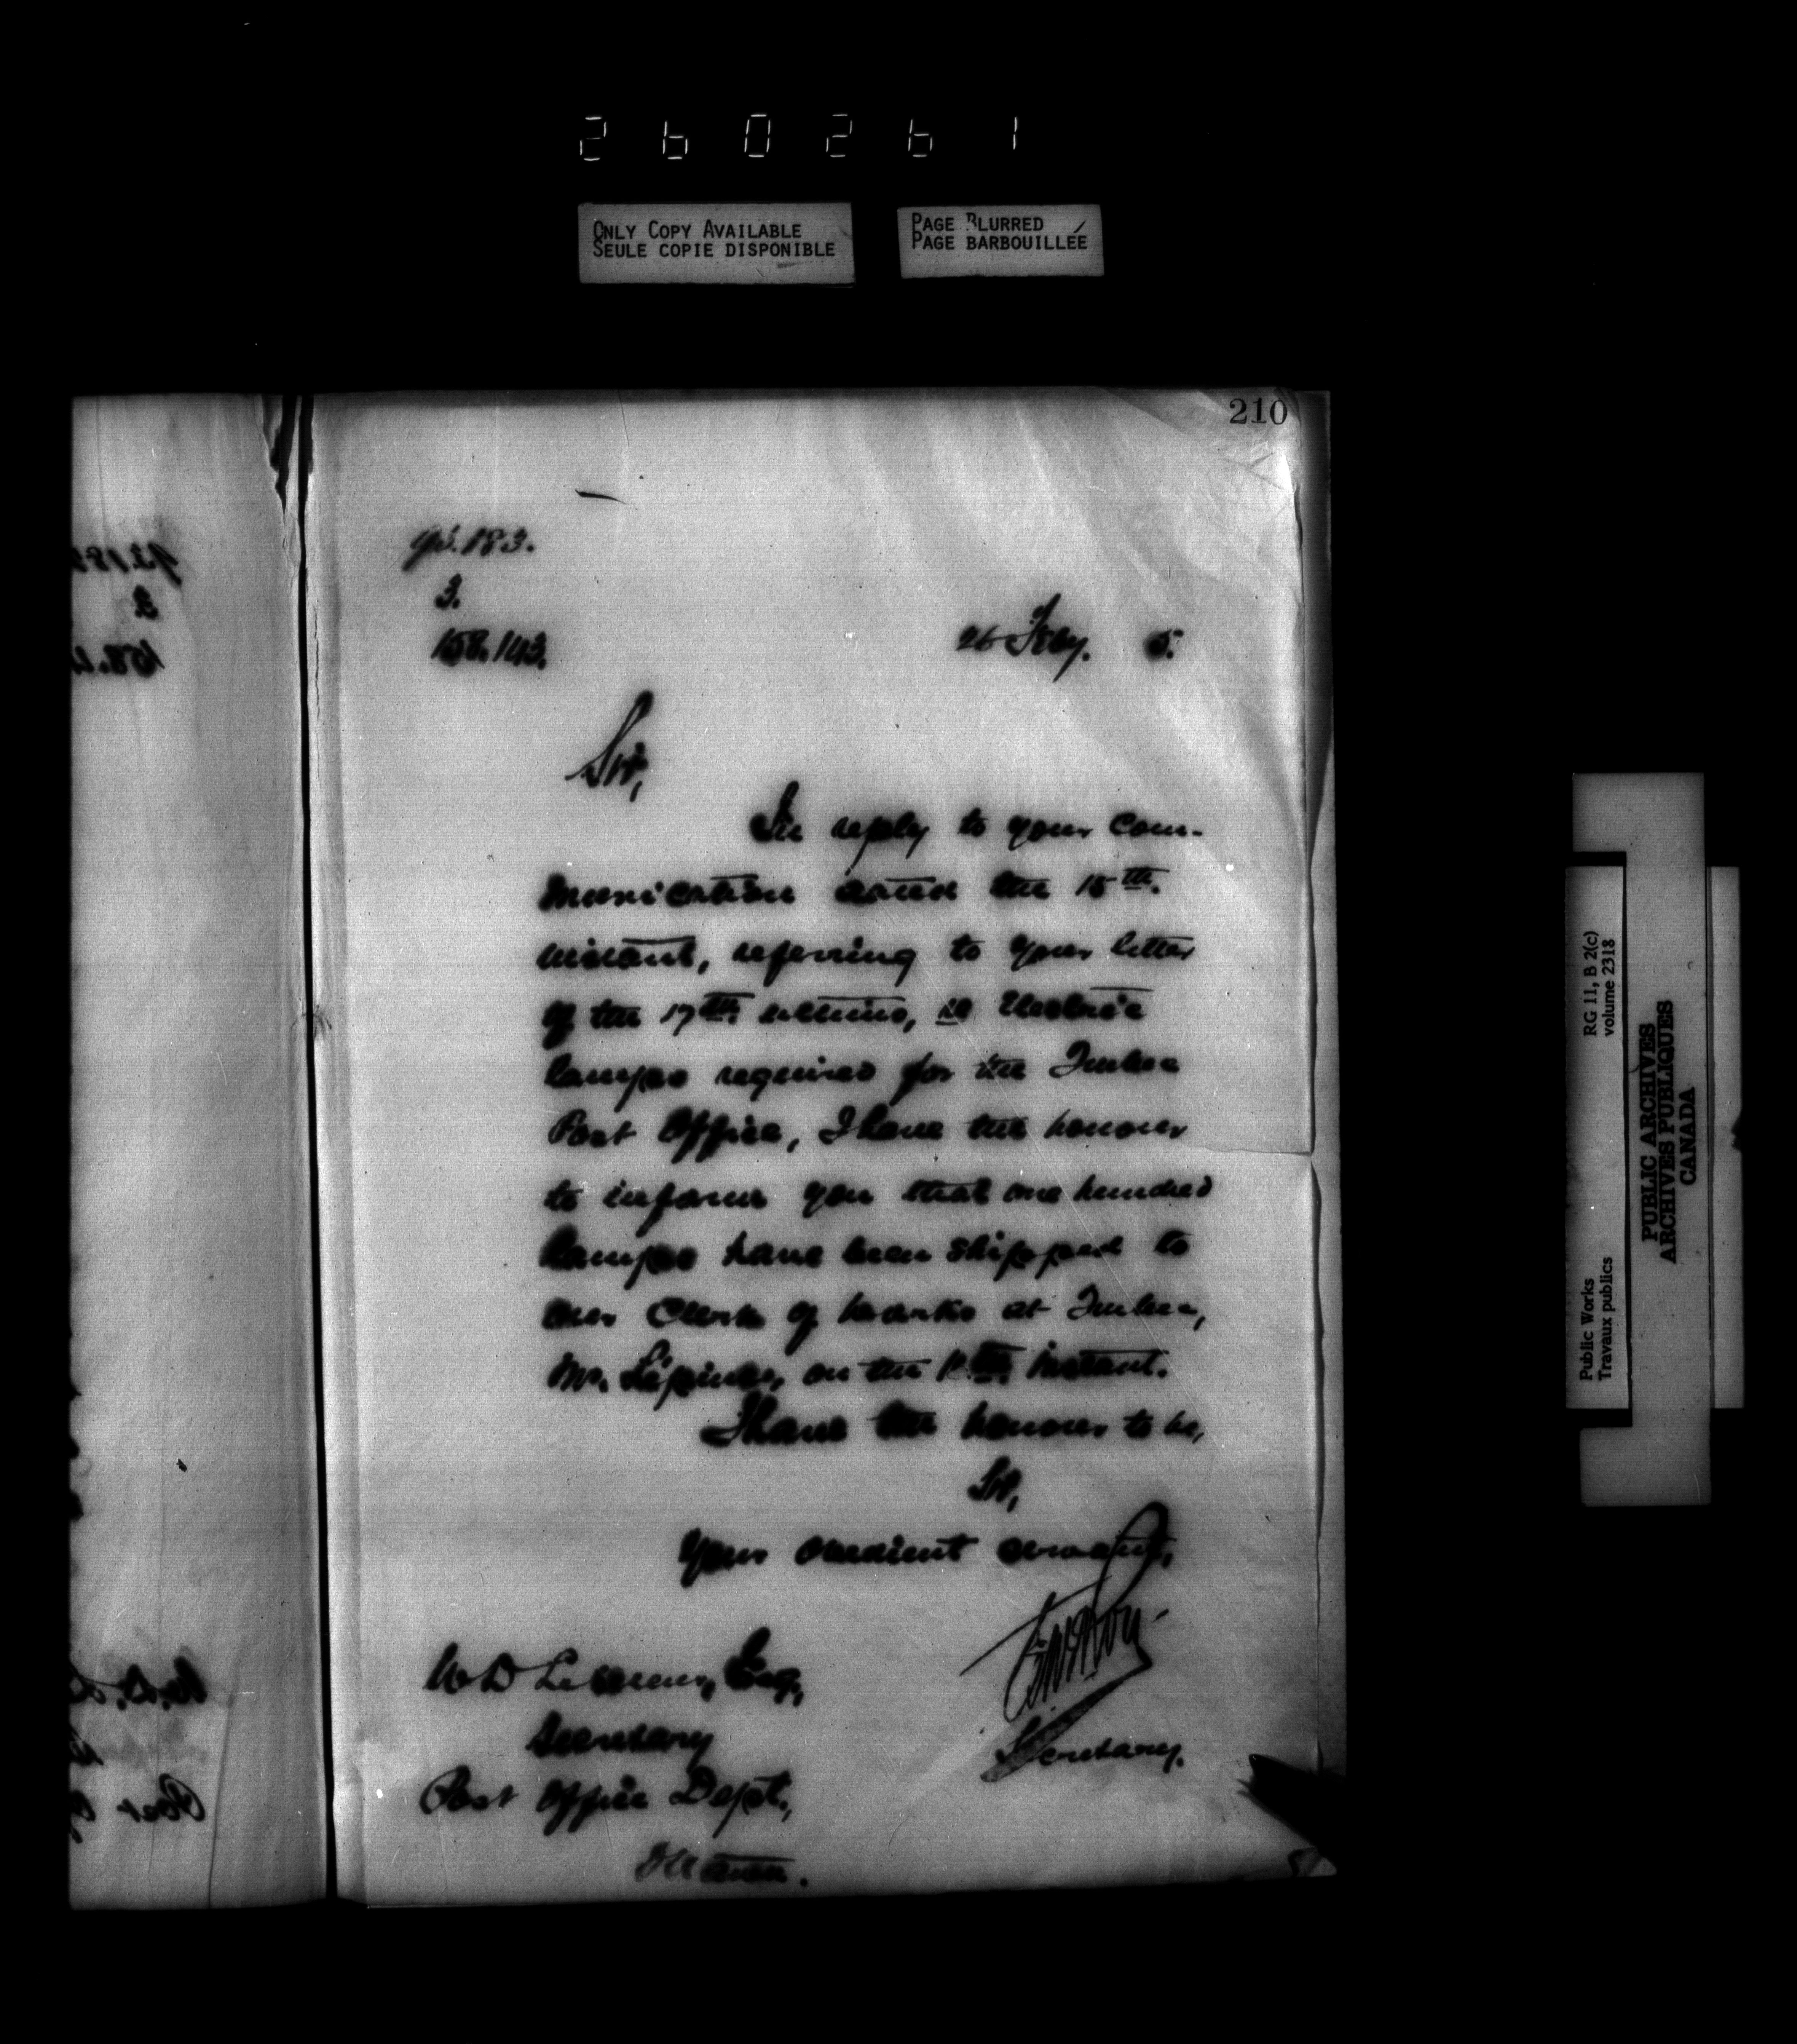 2 6 0 2 6 1
ONLY COPY AVAILABLE
SEULE COPIE DISPONIBLE
PAGE BLURRED
PAGE BARBOUILLÉE
210
3.
158.143.
26 Feby. 5.
Sir,
In reply to your com-
munication dated the 15th.
instant, referring to your letter
of the 17th. ultimo, re Electric
lamps required for the Quebec
Post Office, I have the honour
to inform you that one hundred
lamps have been shipped to
our Clerk of Works at Quebec,
Mr. Lépinay, on the instant.
I have the honour to be,
Sir,
Your obedient servant,
W D LeSueur, Esq.,
Secretary
Post Office Dept.,
Ottawa.
Secretary.
Public Works
Travaux publics
RG 11, B 2(c)
volume 2318
PUBLIC ARCHIVES
ARCHIVES PUBLIQUES
CANADA